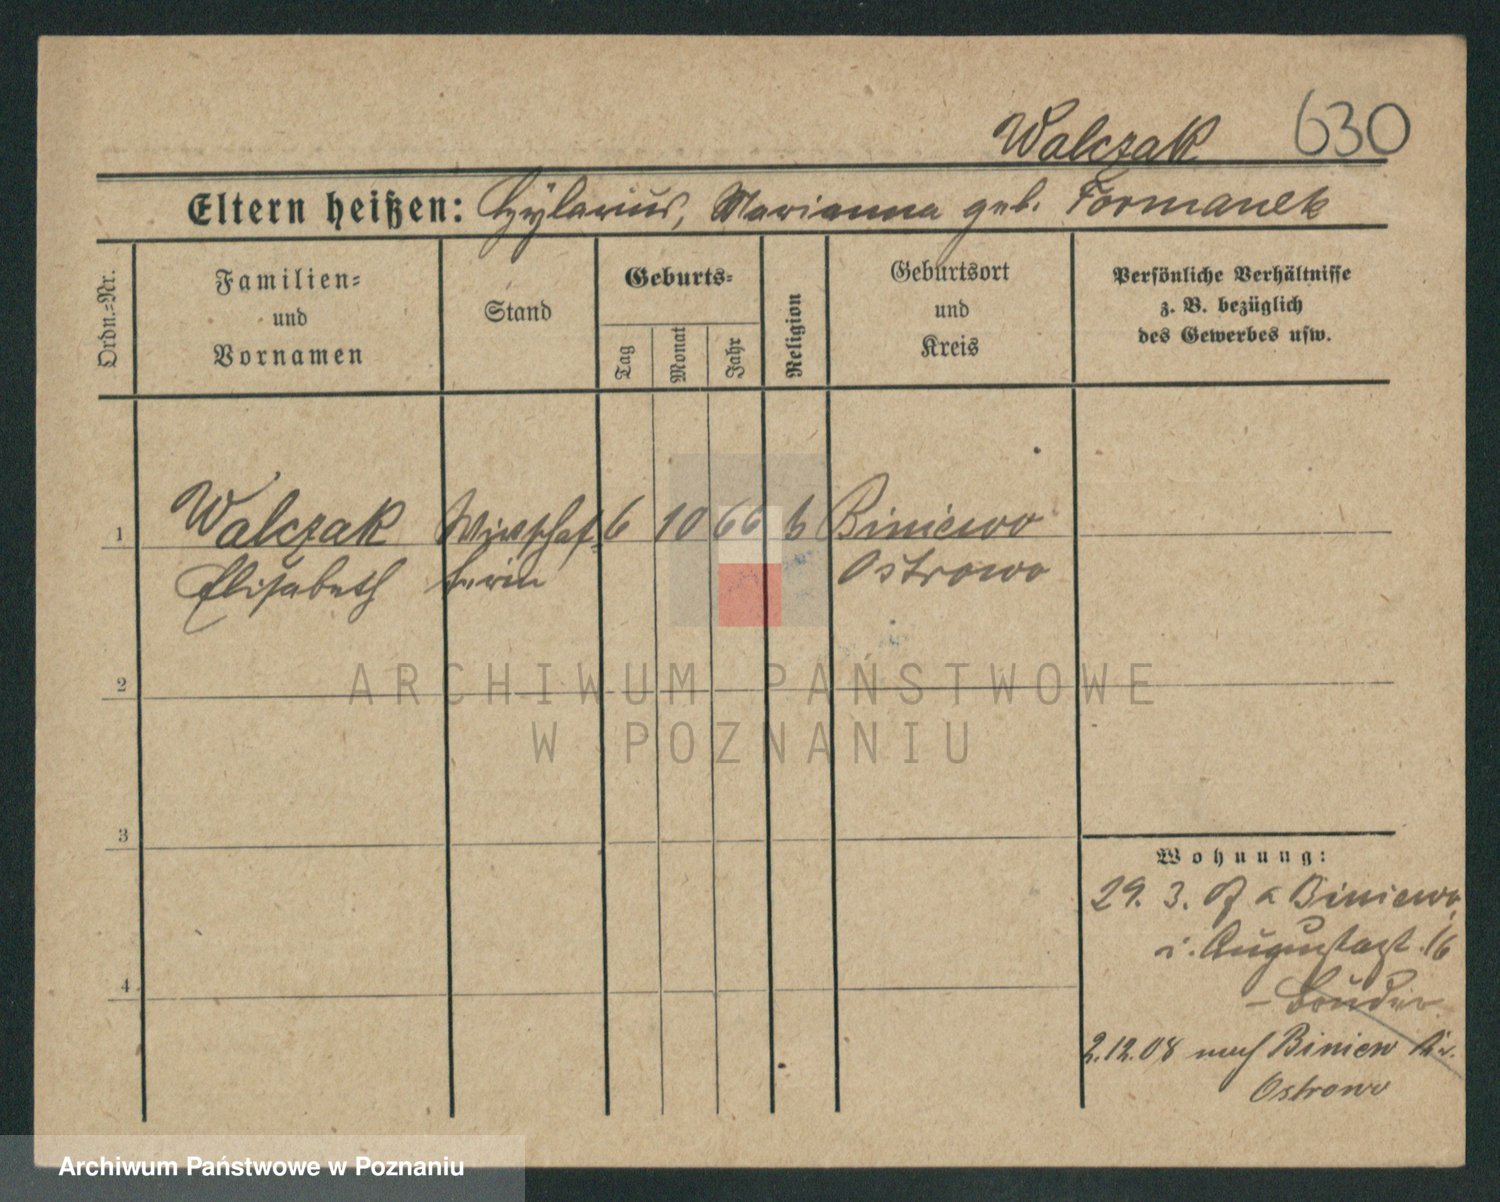 Walczak 630
Eltern heißen: Hylarius, Marianna geb. Formanek
Ordn.=Nr.
Familien=
und
Vornamen
Stand
Geburts=
Tag
Monat
Jahr
Religion
Geburtsort
und
Kreis
Persönliche Verhältnisse
z. B. bezüglich
des Gewerbes usw.
1 Walczak Wirtschaf= 6 10 66 k Biniewo
Elisabeth terin Ostrowo
2
3
4
Wohnung:
29. 3. 07 Biniewo
i. Augustastr. 16
– Bruder.
2.12.08 nach Biniew Kr.
Ostrowo
ARCHIWUM PAŃSTWOWE
W POZNANIU
Archiwum Państwowe w Poznaniu